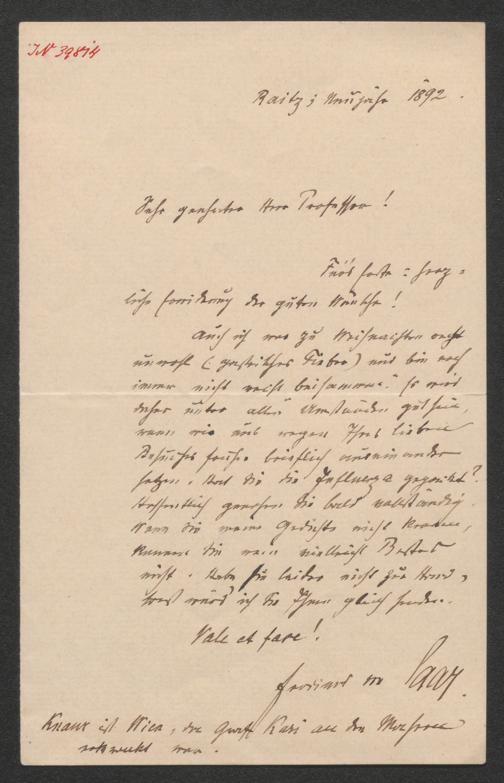 IN 39814
Raitz; Neujahr 1892.
Sehr geehrter Herr Professor!
Fürs Erste: herz-
liche Erwiderung der guten Wünsche!
Auch ich war zu Weihnachten recht
unwohl (gastrisches Fieber) und bin noch
immer nicht recht beisammen. Es wird
daher unter allen Umständen gut sein,
wenn wir uns wegen Ihres lieben
Besuches früher brieflich auseinander
setzen. Hat Sie die Influenza gepackt?
Hoffentlich genesen Sie bald vollständig.
Wenn Sie meine Gedichte nicht kennen,
kennen Sie mein vielleicht Bestes
nicht. Habe sie leider nicht zur Hand,
sonst würd' ich sie Ihnen gleich senden.
Vale et fave!
Ferdinand von Saar.
Knaur ist Wien, der Graf
war.